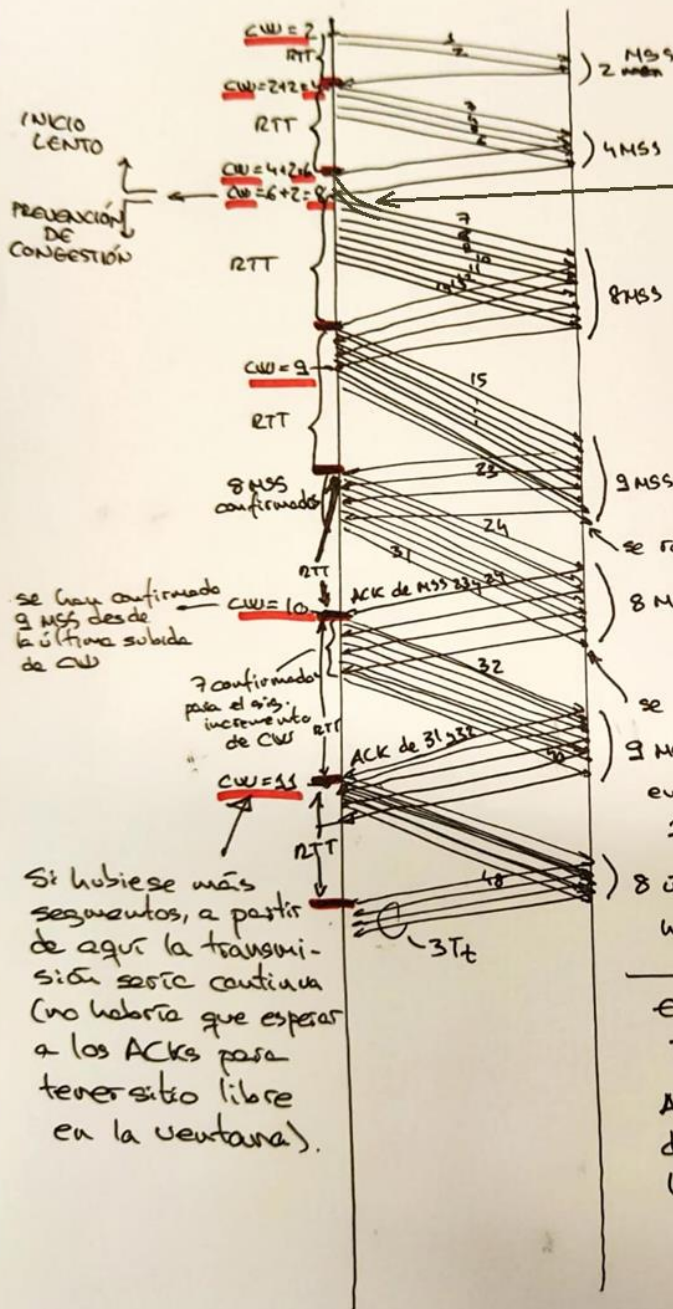 CW = 2
RTT
1
2
2 MSS
CW = 2+2 = 4
RTT
4 MSS
INICIO
LENTO
CW = 4+2=6
CW = 6+2 = 8
PREVENCIÓN
DE
CONGESTIÓN
7
RTT
8 MSS
CW = 9
RTT
15
23
9 MSS
8 MSS
confirmados
24
31
se
RTT
ACK de MSS 23 y 24
8 M
se han confirmado
9 MSS desde
la última subida
de CW
CW = 10
7 confirmados
para el sig.
incremento
de CW
RTT
32
se
ACK de 31 y 32
9 M
CW = 11
RTT
48
8
3Tt
Si hubiese más
segmentos, a partir
de aquí la transmi-
sión sería continua
(no habría que esperar
a los ACKs para
tener sitio libre
en la ventana).